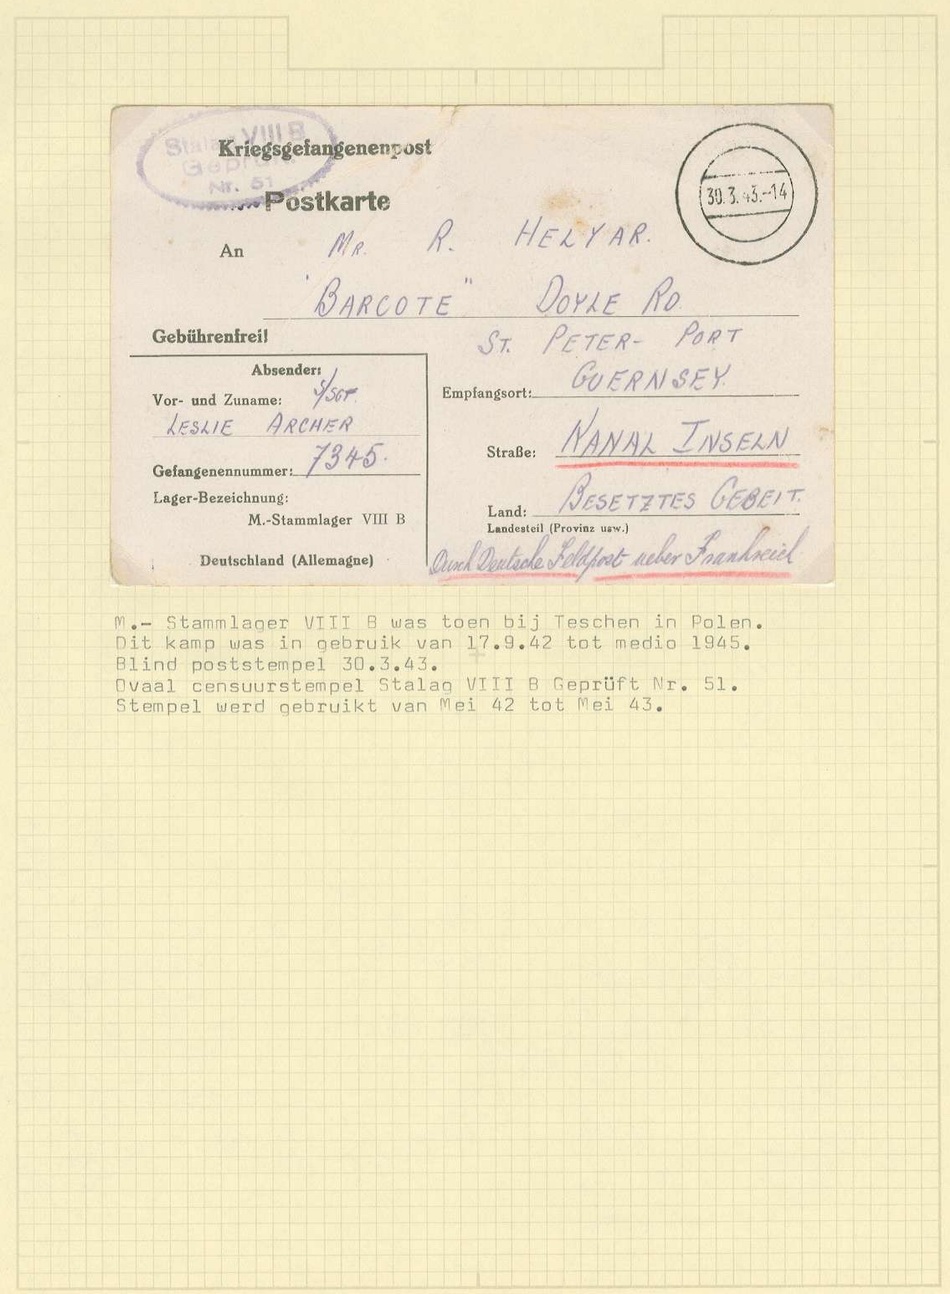 Stalag VIII B
Geprüft
Nr. 51
Kriegsgefangenenpost
Postkarte
30.3.43.-14
An MR. R. HELYAR.
"BARCOTE" DOYLE RD.
Gebührenfrei!
ST. PETER- PORT
Absender:
Vor- und Zuname: S/SGT
LESLIE ARCHER
Gefangenennummer: 7345.
Lager-Bezeichnung:
M.-Stammlager VIII B
Deutschland (Allemagne)
Empfangsort: GUERNSEY.
Straße: KANAL INSELN
Land: BESETZTES GEBEIT.
Landesteil (Provinz usw.)
Durch Deutsche Feldpost ueber Frankreich
M.- Stammlager VIII B was toen bij Teschen in Polen.
Dit kamp was in gebruik van 17.9.42 tot medio 1945.
Blind poststempel 30.3.43.
Ovaal censuurstempel Stalag VIII B Geprüft Nr. 51.
Stempel werd gebruikt van Mei 42 tot Mei 43.